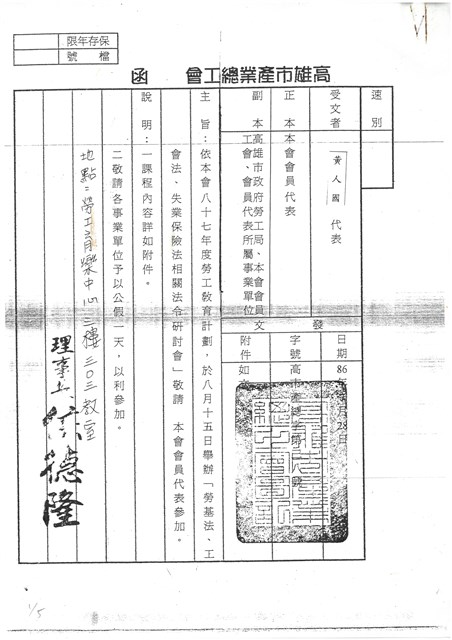 保存年限
檔號
高雄市產業總工會 函
速別
受文者
黃人國 代表
正本 本會會員代表
副本 高雄市政府勞工局、本會會員
工會、會員代表所屬事業單位
發文
日期 86年 月28日
字號
附件 如
主旨：依本會八十七年度勞工敎育計劃，於八月十五日舉辦「勞基法、工
會法、失業保險法相關法令研討會」敬請 本會會員代表參加。
說明：一課程內容詳如附件。
二敬請各事業單位予以公假一天，以利參加。
地點：勞工育樂中心三樓三〇三教室
理事長 德隆
1/5